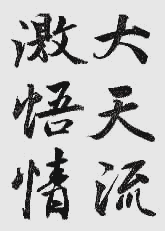 大天流
激悟情